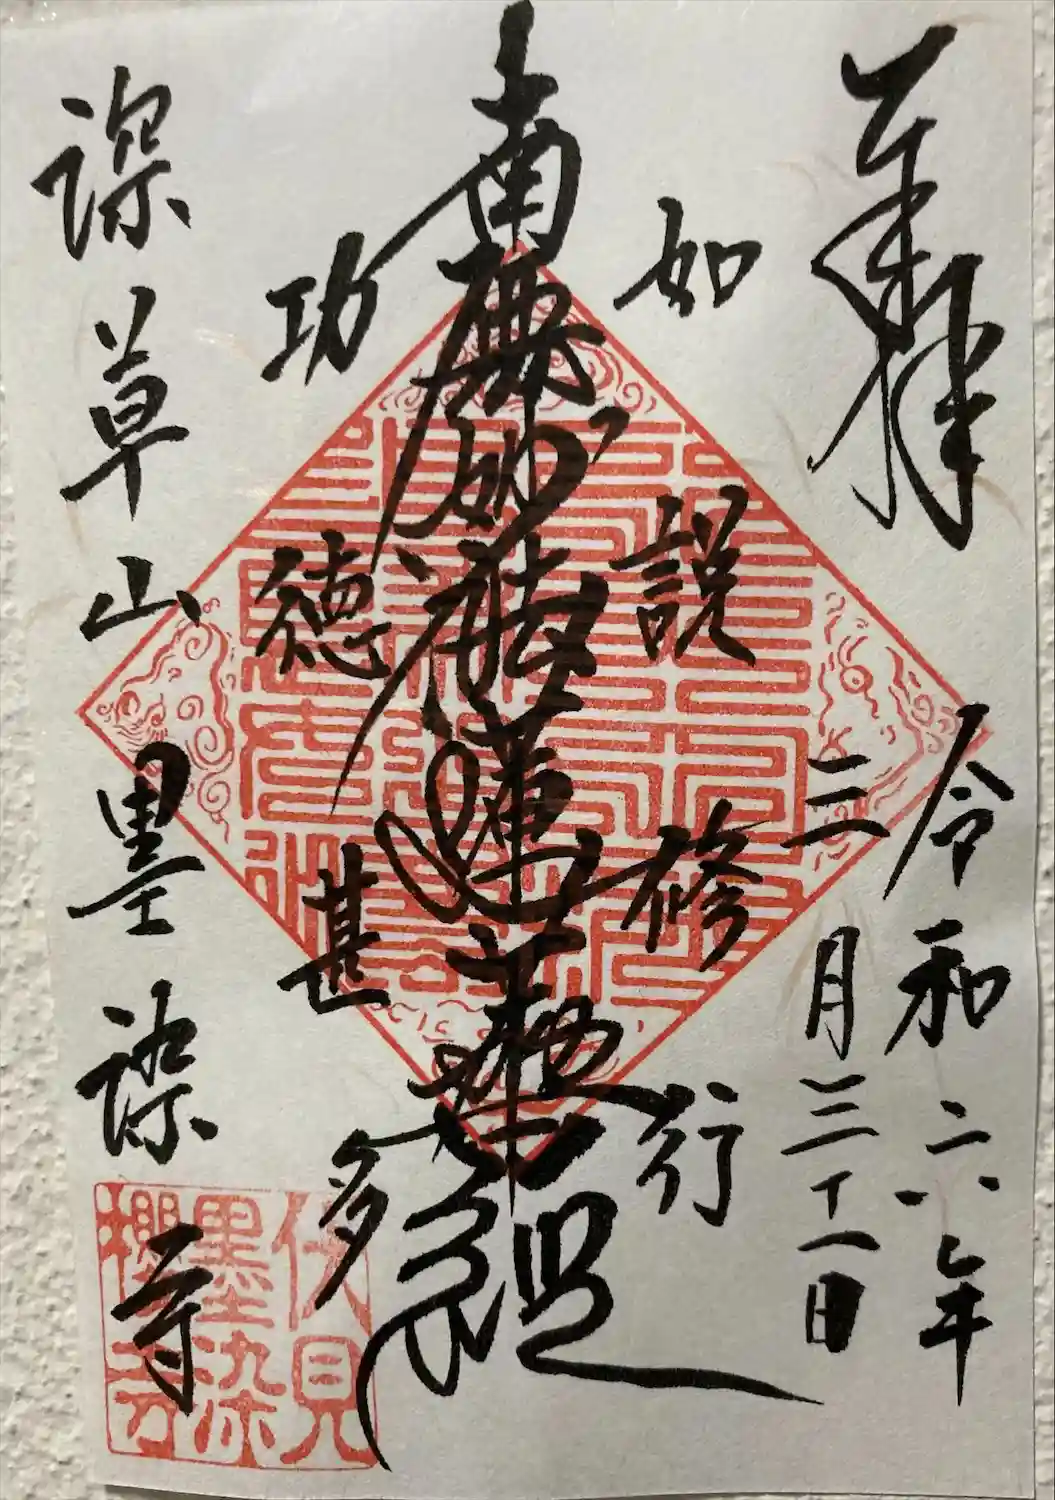 奉拝
令和六年
三月三十一日
如説修行
南無妙法蓮華経
功徳甚多
深草山墨染寺
伏見
墨染
櫻寺